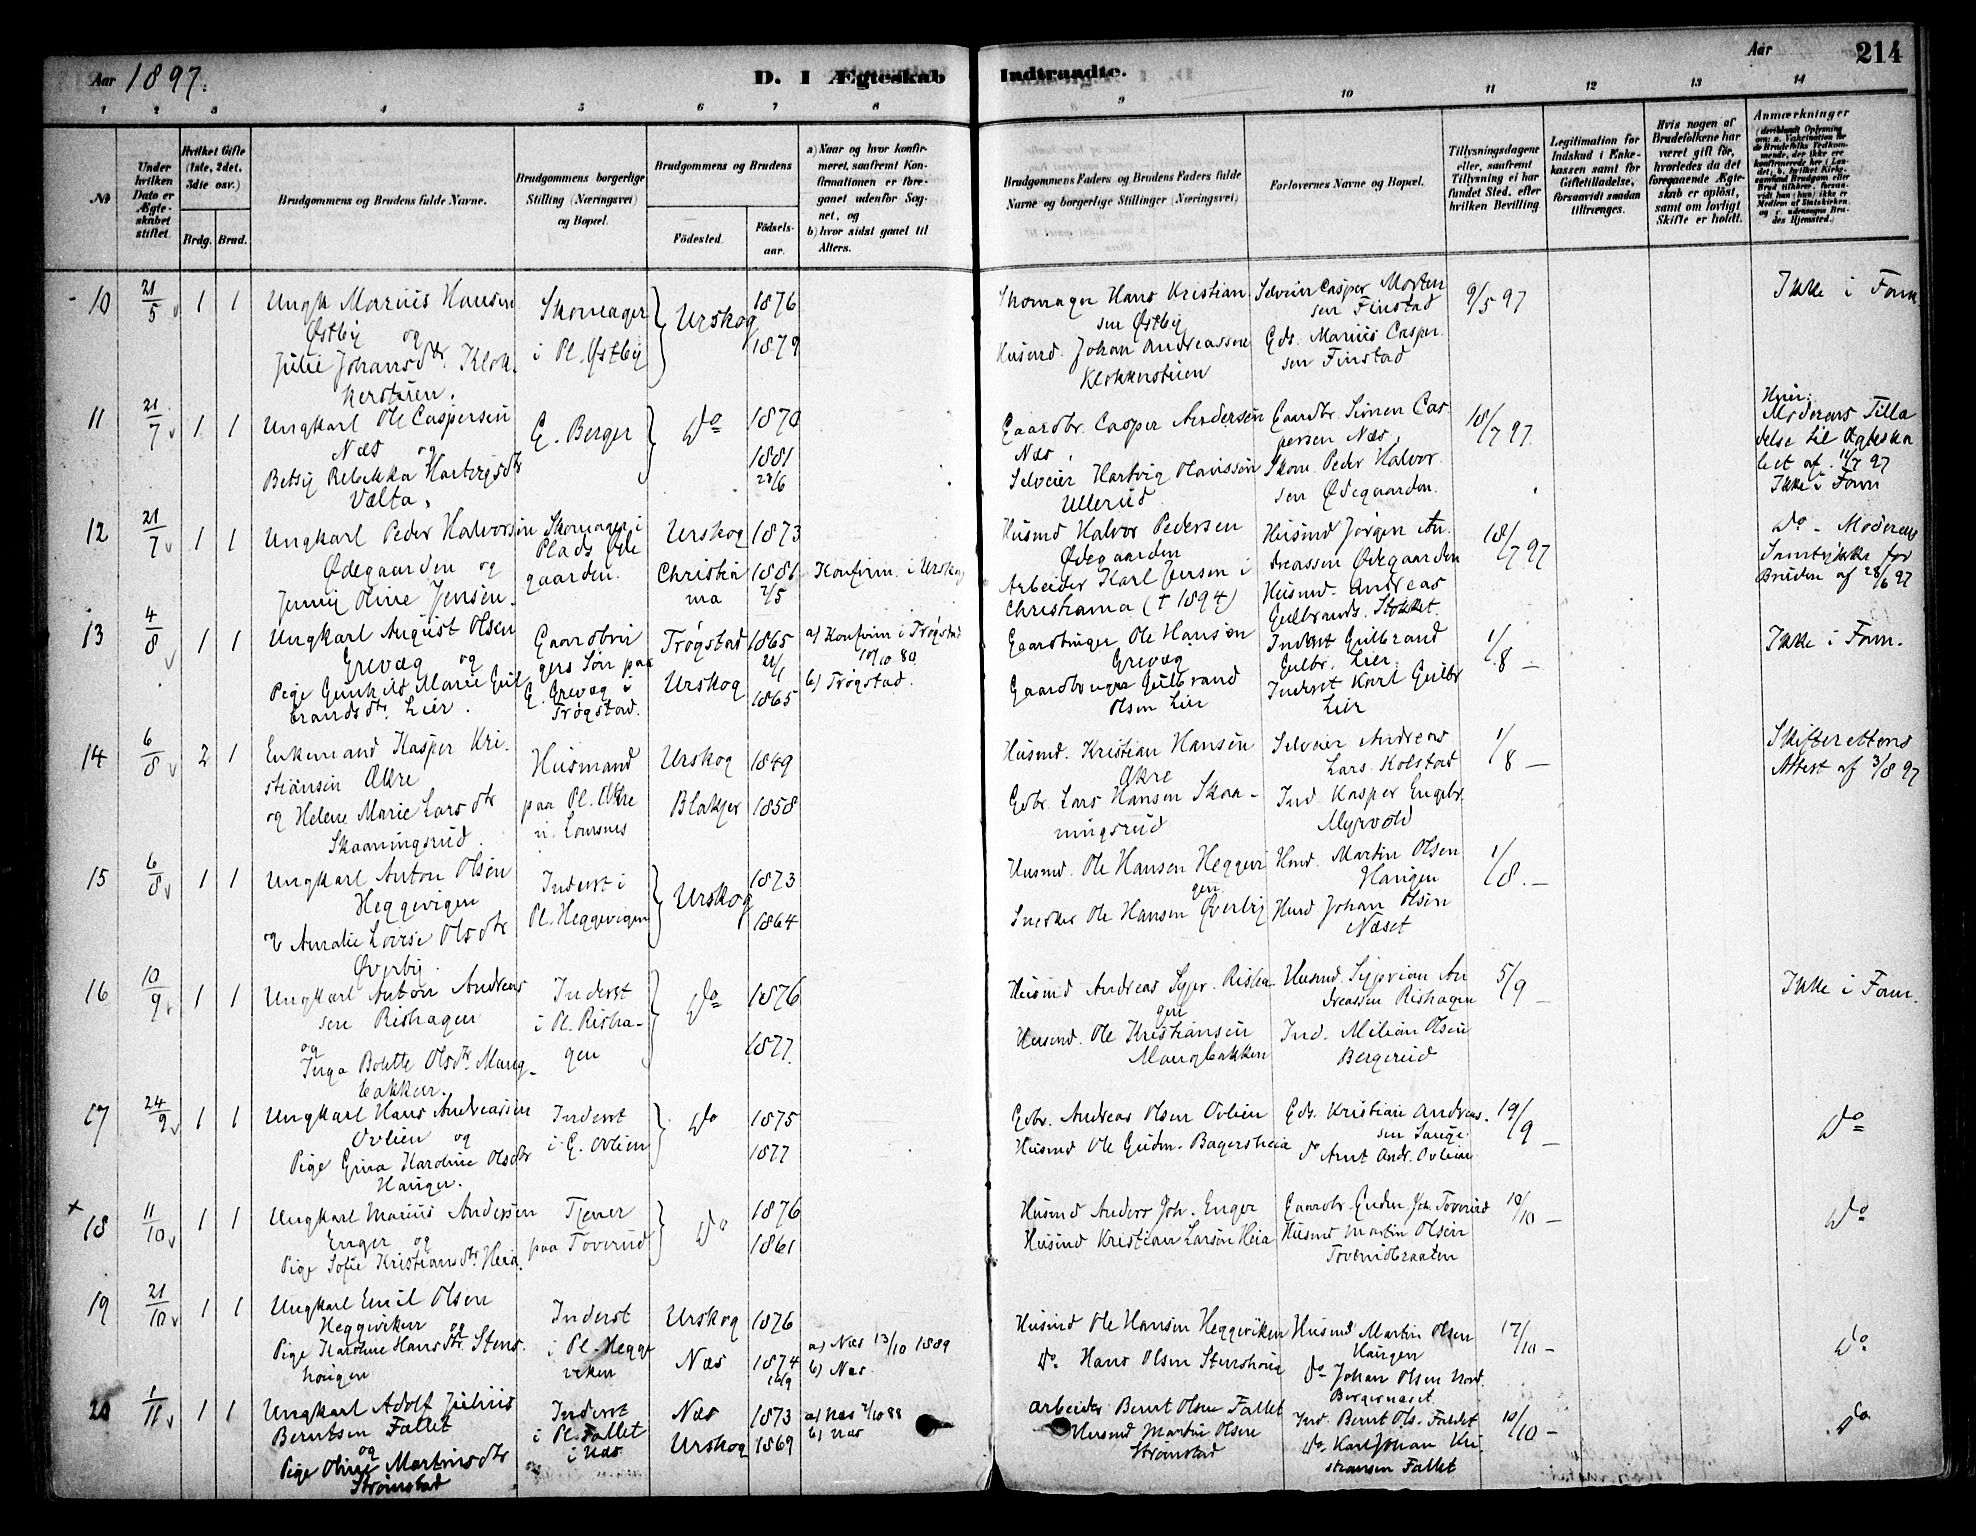 Aar 1897.
D. I Ægteskab Indtraadte.
Aar
214
1 2 3 4 5 6 7 8 9 10 11 12 13 14
No
Under hvilken Dato er Ægteskabet stiftet.
Hvilket Gifte (1ste, 2det, 3die osv.)
Brdg. Brud.
Brudgommens og Brudens fulde Navne.
Brudgommens borgerlige Stilling (Næringsvei) og Bopæl.
Brudgommens og Brudens
Födested. Födselsaar.
a) Naar og hvor konfirmeret, saafremt Konfirmationen er foregaaet udenfor Sognet, og
b) hvor sidst gaaet til Alters.
Brudgommens Faders og Brudens Faders fulde Navne og borgerlige Stillinger (Næringsvei)
Forlovernes Navne og Bopæl.
Tillysningsdagene eller, saafremt Tillysning ei har fundet Sted, efter hvilken Bevilling
Legitimation for Indskud i Enkekassen samt for Giftetilladelse, forsaavidt saadan tiltrænges.
Hvis nogen af Brudefolkene har været gift för, hvorledes da det foregaaende Ægteskab er oplöst, samt om lovligt Skifte er holdt.
Anmærkninger
10 21/5 1 1
Ungk Marius Hansen
Østby og
Julie Johansdtr. Klok
kerstuen.
Skomager
i Pl. Østby
Urskog
1876
1879
Skomager Hans Kristian
sen Østby
Husmd. Johan Andreassen
Klokkerstuen
Selveier Casper Morten
sen Finstad
Gds. Marius Casper
sen Finstad
9/5 97
Ikke i Fam.
11 21/7 1 1
Ungkarl Ole Caspersen
Næs og
Betsy Rebekka Hartvigsdtr
Vælta.
G. Berger
Do
1870
1881
23/6
Gaardbr. Casper Andersen
Næs.
Selveier Hartvig Olavssen
Ullerud
Gaardbr. Simen Cas
persen Næs.
Skom. Peder Halvor
sen Ødegaarden.
18/7 97.
Moderens Tilla
delse til Ægteska
bet af 11/7 97
Ikke i Fam
12 21/7 1 1
Ungkarl Peder Halvorsen
Ødegaarden og
Jenny Oline Jensen.
Skomager i
Plads Øde
gaarden.
Urskog
Christia
nia
1873
1881
2/5
Konfirm. i Urskog
Husmd Halvor Pedersen
Ødegaarden
Arbeider Karl Jensen i
Christiania († 1894)
Husmd Jørgen An
dreassen Ødegaarden
Husmd. Andreas
Gulbrands. Stokket.
18/7 97
Do - Moderens
Samtykke for
Bruden af 28/6 97
13 4/8 1 1
Ungkarl August Olsen
Grevæg og
Pige Gunhild Marie Gul
brandsdtr. Lier.
Gaardbru
gers Søn paa
G. Grevæg i
Trøgstad.
Trøgstad
Urskog
1865
21/1
1865
a) Konfirm i Trøgstad
10/10 80
b) Trøgstad.
Gaardbruger Ole Hansen
Grevæg
Gaardbruger Gulbrand
Olsen Lier
Inderst Gulbrand
Gulbr. Lier.
Inderst Karl Gulbr
Lier
1/8 —
Ikke i Fam.
14 6/8 2 1
Enkemand Kasper Kri
stiansen Økre
og Helene Marie Larsdtr
Skaaningsrud.
Husmand
paa Pl. Økre
Urskog
Blakjer
1849
1858
Husmd. Kristian Hansen
Økre
Gdbr. Lars Hansen Skaa-
ningsrud
Selveier Andreas
Lars. Kolstad
Ind. Kasper Engebr.
Myrvold
1/8 —
Skifterettens
Attest af 3/8 97
15 6/8 1 1
Ungkarl Anton Olsen
Heggevigen
og Amalie Lovise Olsdtr
Øverby.
Inderst i
Pl. Heggevigen
Urskog
1873
1864
Husmd. Ole Hansen Heggevi
gen
Snedker Ole Hansen Øverby
Hmd. Martin Olsen
Haugen
Husd Johan Olsen
Næset
1/8. —
16 10/9 1 1
Ungkarl Anton Andreas
sen Rishagen
og
Inga Bolette Olsdtr. Maug-
bakken.
Inderst
i Pl. Risha-
gen
Do
1876
1877
Husmd Andreas Sypr. Risha
gen
Husmd. Ole Kristiansen
Maugbakken
Husmd. Syprian An
dreassen Rishagen
Ind. Milian Olsen
Bergerud
5/9 —
Ikke i Fam.
17 24/9 1 1
Ungkarl Hans Andreassen
Ovlien og
Pige Gina Karoline Olsdtr
Haugen.
Inderst
i G. Ovlien
Do
1875
1877
Gdbr. Andreas Olsen Ovlien
Husmd Ole Gudm. Bagersheia
Gds. Kristian Andreas.
sen
Do Arnt Andr. Ovlien
19/9 —
Do
18 11/10 1 1
Ungkarl Marius Andersen
Enger og
Pige Sofie Kristiansdtr. Heia.
Tjener
paa Toverud
Do
1876
1861
Husmd Anders Joh. Enger
Husmd Kristian Larsen Heia
Gaardbr. Gudm Joh. Toverud
Husmd Martin Olsen
Toverudbraaten
10/10 —
Do
19 21/10 1 1
Ungkarl Emil Olsen
Heggeviken og
Pige Karoline Hansdtr. Stens.
haugen
Inderst
i Pl. Hegge
viken
Urskog
Næs
1876
1874
a) Næs 13/10 1889
b) Næs
Husmd Ole Hansen Heggeviken
Do. Hans Olsen Stenshaug
Husmd Martin Olsen
Haugen
Do Johan Olsen Nord.
Bergernæset
17/10 —
Do
20 1/11 1 1
Ungkarl Adolf Julius
Berntsen Fallet
og
Pige Oline Martinsdtr
Strømstad
Inderst
i Pl. Fallet
i Næs
Næs
Urskog
1873
1869
a) Næs 7/10 88
b) Næs
Arbeider Bernt Olsen Fallet
Husmd Martin Olsen
Strømstad
Ind. Bernt Ols. Faldet
Do. Karl Johan Kri
stiansen Fallet
10/10 —
Do